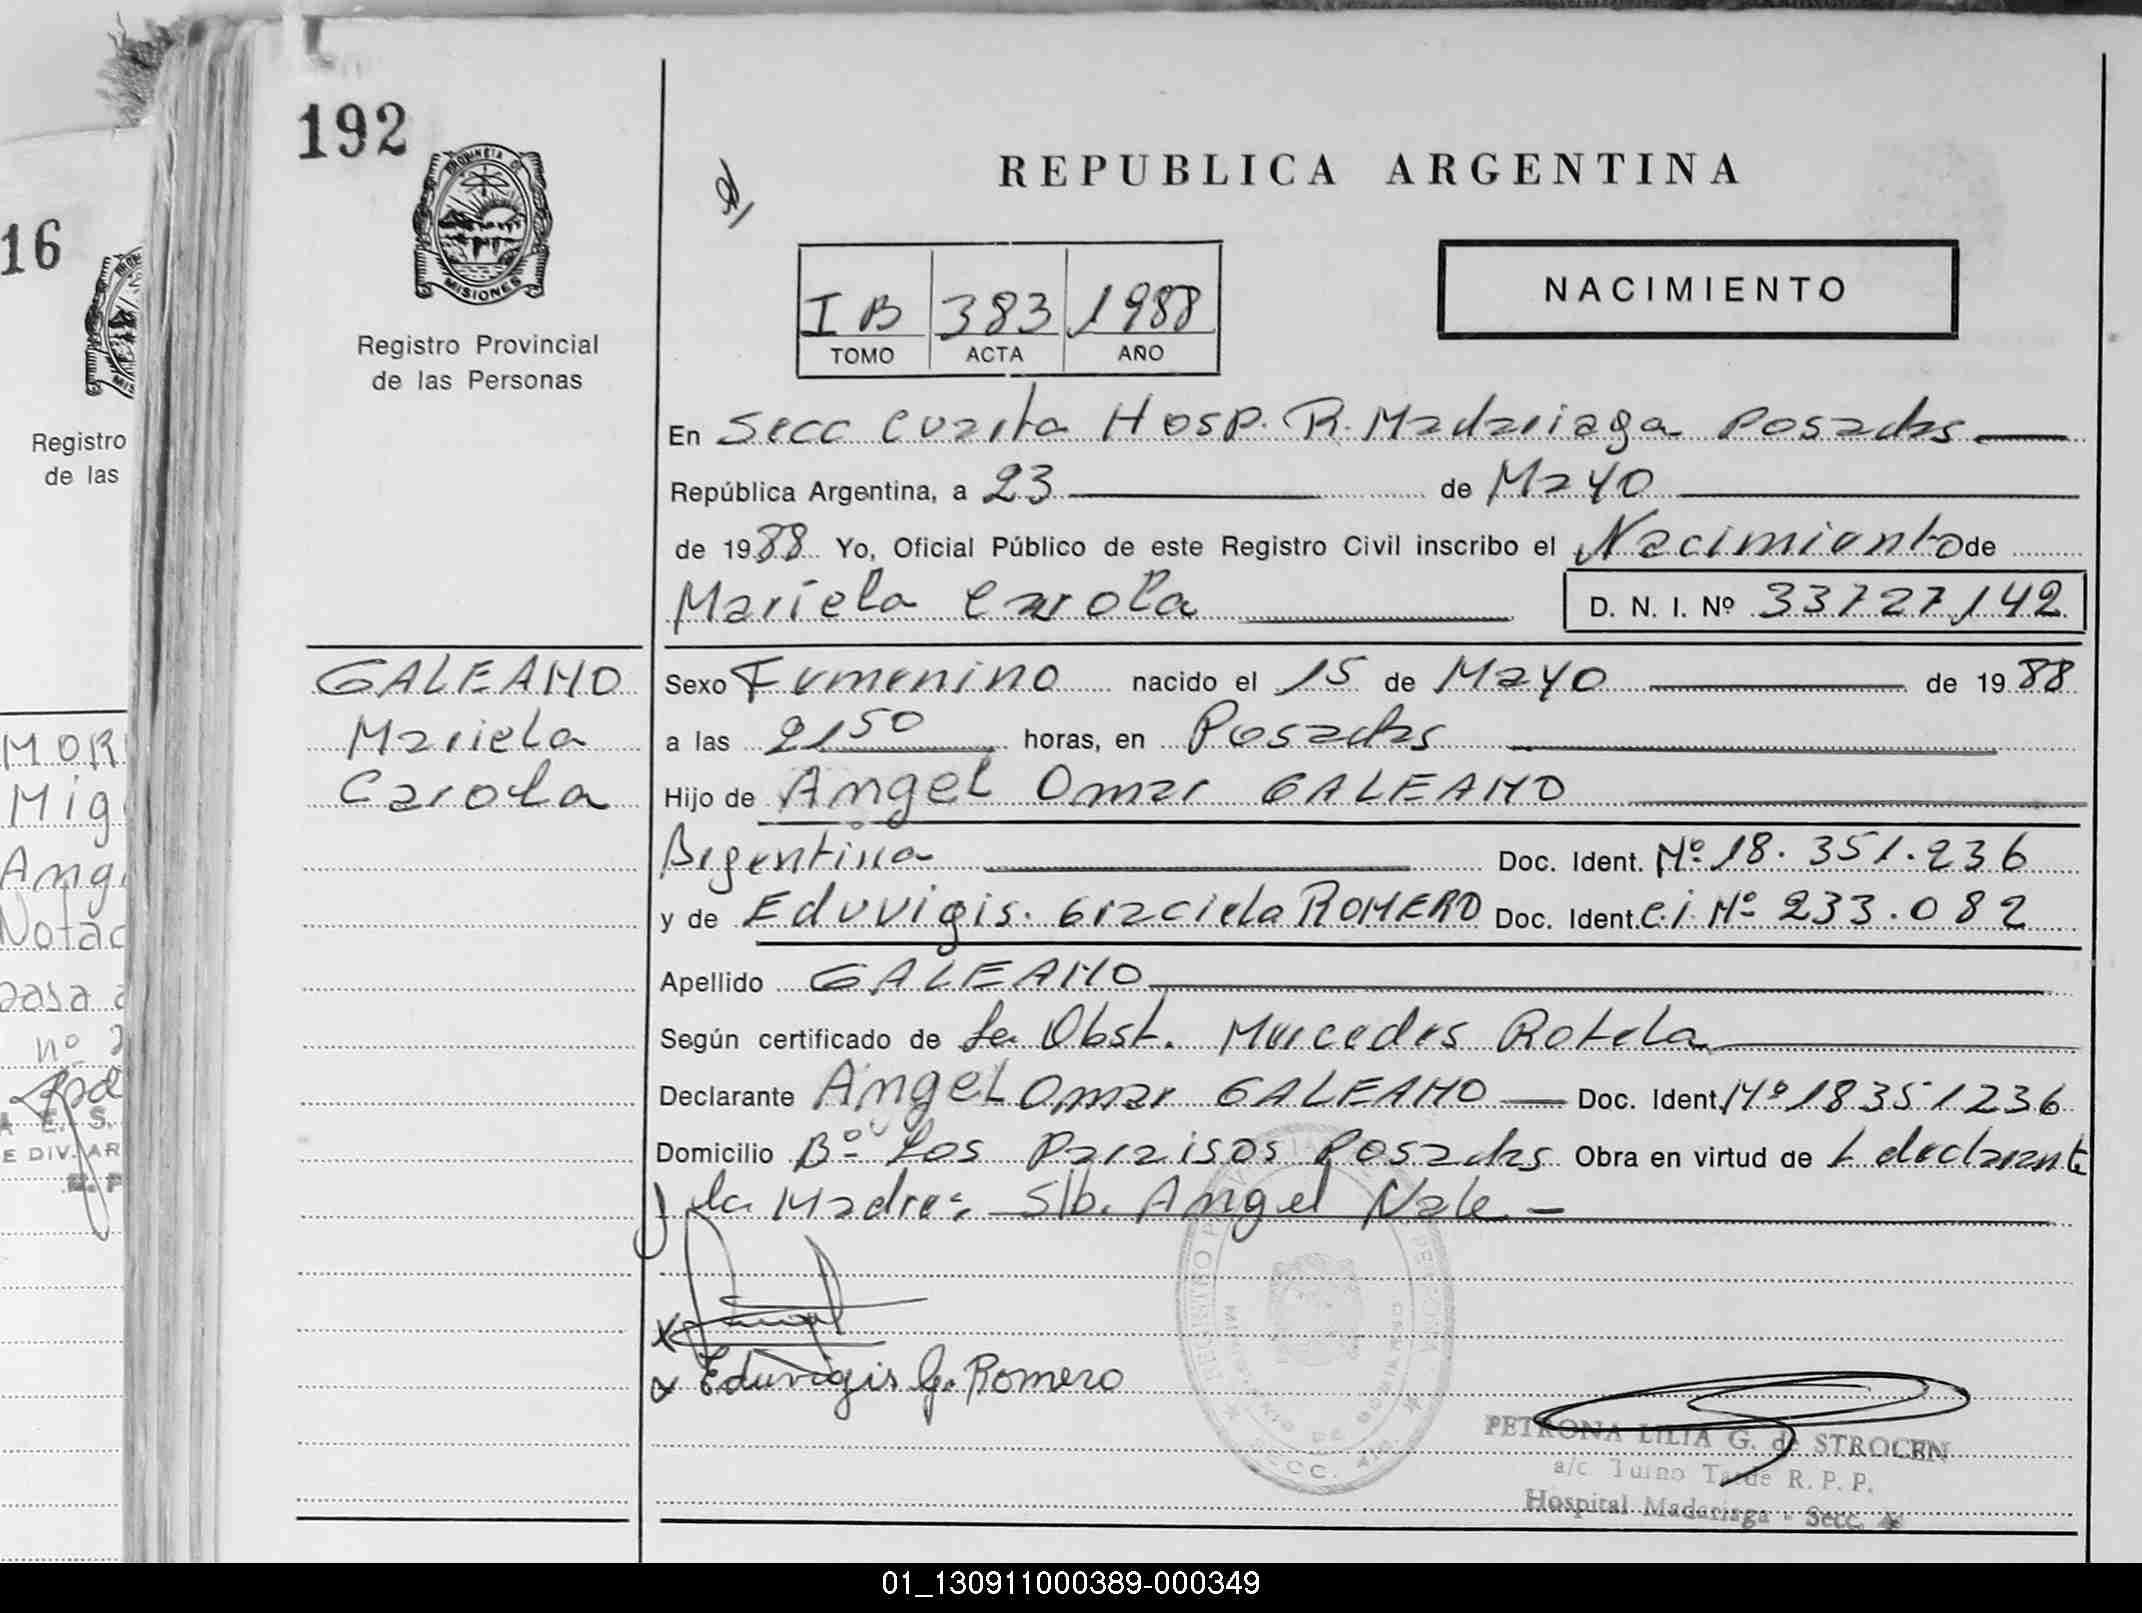 192
PROVINCIA DE
MISIONES
Registro Provincial
de las Personas
GALEANO
Mariela
Carola
REPUBLICA ARGENTINA
I B 383 1988
TOMO ACTA AÑO
NACIMIENTO
En Secc Cuarta Hosp. R. Madariaga Posadas
República Argentina, a 23 de Mayo
de 1988 Yo, Oficial Público de este Registro Civil inscribo el Nacimiento de
Mariela Carola D. N. I. Nº 33727142
Sexo Femenino nacido el 15 de Mayo de 1988
a las 21 50 horas, en Posadas
Hijo de Angel Omar GALEANO
Argentina Doc. Ident. Nº 18.351.236
y de Eduvigis. Graciela ROMERO Doc. Ident. C.i. Nº 233.082
Apellido GALEANO
Según certificado de la Obst. Mercedes Rotela
Declarante Angel Omar GALEANO Doc. Ident. Nº 18351236
Domicilio Bº Los Paraisos Posadas Obra en virtud de L declarante
y la Madre: S/b. Angel Vale.-
x
x Eduvigis G. Romero
PETRONA LILIA G. de STROCEN
a/c Turno Tarde R. P. P.
Hospital Madariaga - Secc. 4a
16
Registro
de las
MOR
Mig
Ang
Notac
nº 2
E. S.
E DIV. AR
01_130911000389-000349